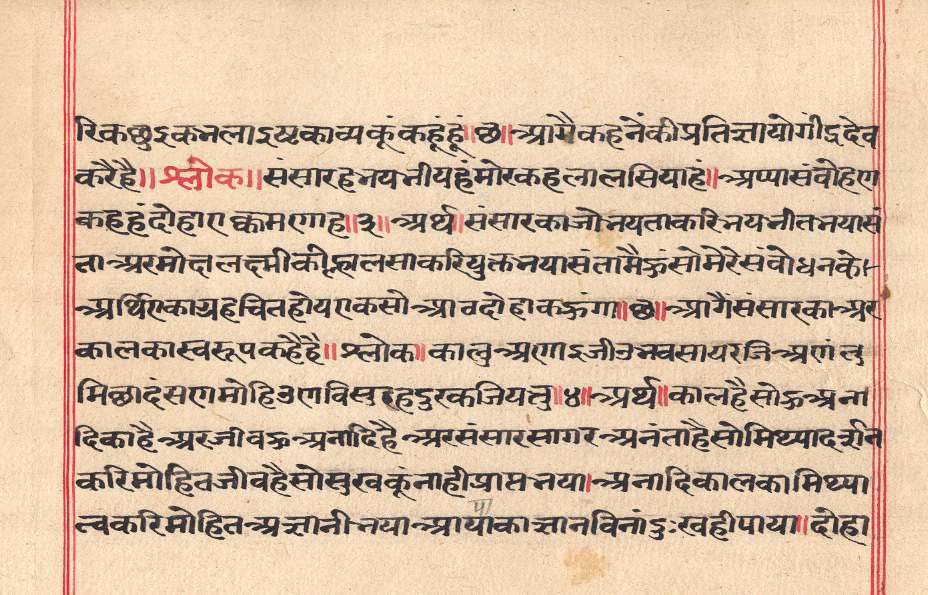 रिकछुऽकनलाऽष्टकाव्यकूंकहूंहूं॥छ॥आगैकहनेंकीप्रतिज्ञायोगींद्रदेव
करैहै॥श्लोक॥संसारहनयनीयहंमोरकहलालसियाहं॥अप्पासंवोहण
कहहंदोहाएक्कमणाह॥३॥अर्थ॥संसारकाजोनयताकरिनयनीतनयासं
ताअरमोक्षलक्ष्मीकीलालसाकरियुक्तनयासंतामैंऊंसोमेरेसंवोधनके
अर्थिएकाग्रहचितहोयएकसोआवदोहाकऊगा॥छ॥आगैंसंसारकाअर
कालकास्वरूपकहैहै॥श्लोक॥कालुअणाऽजीउनवसायरजिअणंतु
मिछादंसणमोहिउणविसुहदुरकजियत्तु॥४॥अर्थ॥कालहैसोऊअना
दिकाहैअरजीवऊअनादिहैअरसंसारसागरअनंताहैसोमिथ्यादर्शन
करिमोहितजीवहैसोसुखकूंनाहीप्राप्तनया।अनादिकालकामिथ्या
त्वकरिमोहितअज्ञानीनयाआपाकाज्ञानविनांदुःखहीपाया॥दोहा